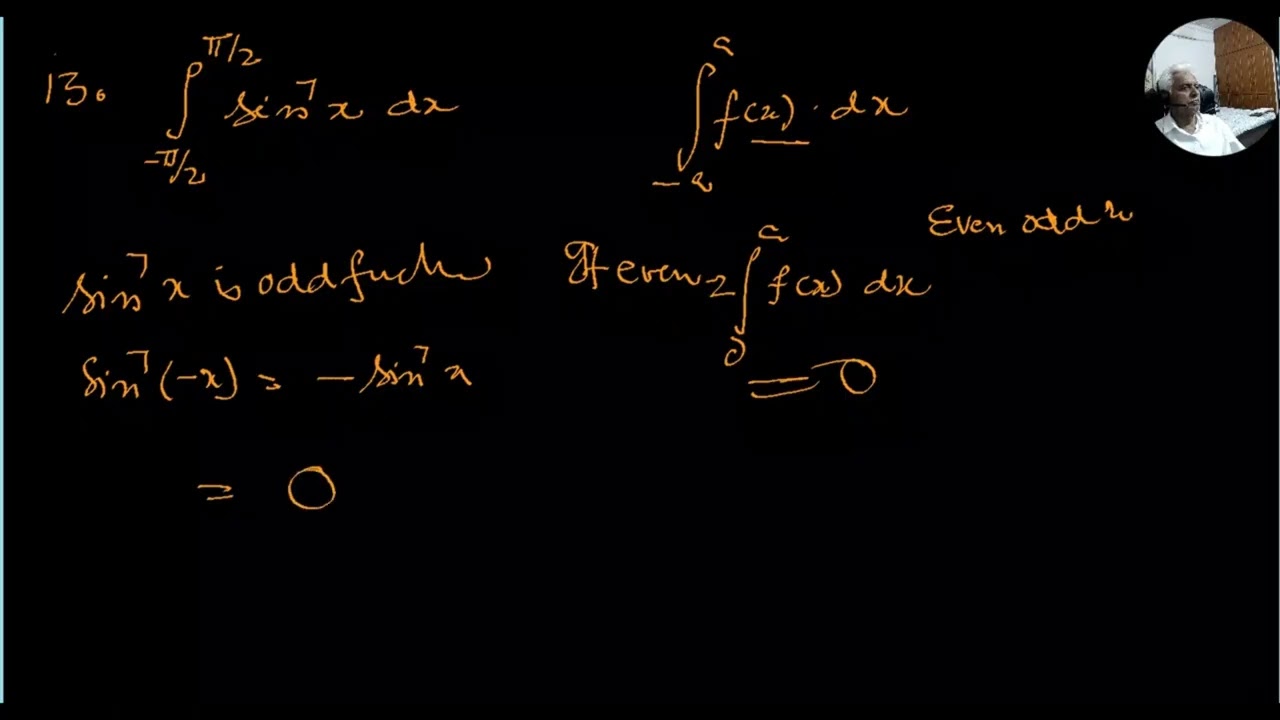 13. ∫_{-π/2}^{π/2} sin⁻¹ x dx
∫_{-a}^{a} f(x) · dx
Even odd
sin⁻¹ x is odd
If even 2 ∫_{0}^{a} f(x) dx
sin⁻¹ (-x) = - sin⁻¹ x
= 0
= 0